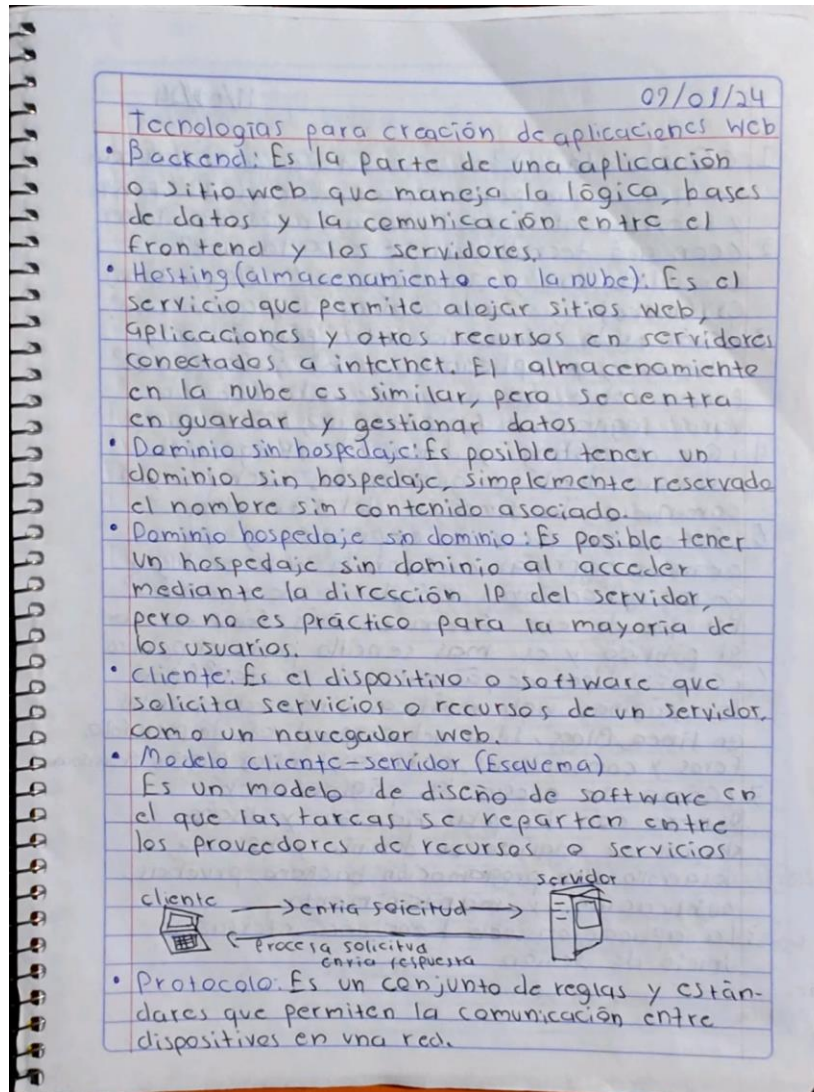 09/01/24
Tecnologías para creación de aplicaciones web
• Backend: Es la parte de una aplicación
o sitio web que maneja la lógica, bases
de datos y la comunicación entre el
frontend y los servidores.
• Hosting (almacenamiento en la nube): Es el
servicio que permite alojar sitios web,
aplicaciones y otros recursos en servidores
conectados a internet. El almacenamiento
en la nube es similar, pero se centra
en guardar y gestionar datos
• Dominio sin hospedaje: Es posible tener un
dominio sin hospedaje, simplemente reservado
el nombre sin contenido asociado.
• Dominio hospedaje sin dominio: Es posible tener
un hospedaje sin dominio al acceder
mediante la dirección IP del servidor,
pero no es práctico para la mayoria de
los usuarios.
• cliente: Es el dispositivo o software que
solicita servicios o recursos de un servidor,
como un navegador web.
• Modelo cliente-servidor (Esquema)
Es un modelo de diseño de software en
el que las tareas se reparten entre
los proveedores de recursos o servicios
servidor
cliente
envia soicitud
procesa solicitud
envia respuesta
• Protocolo: Es un conjunto de reglas y están-
dares que permiten la comunicación entre
dispositivos en una red.